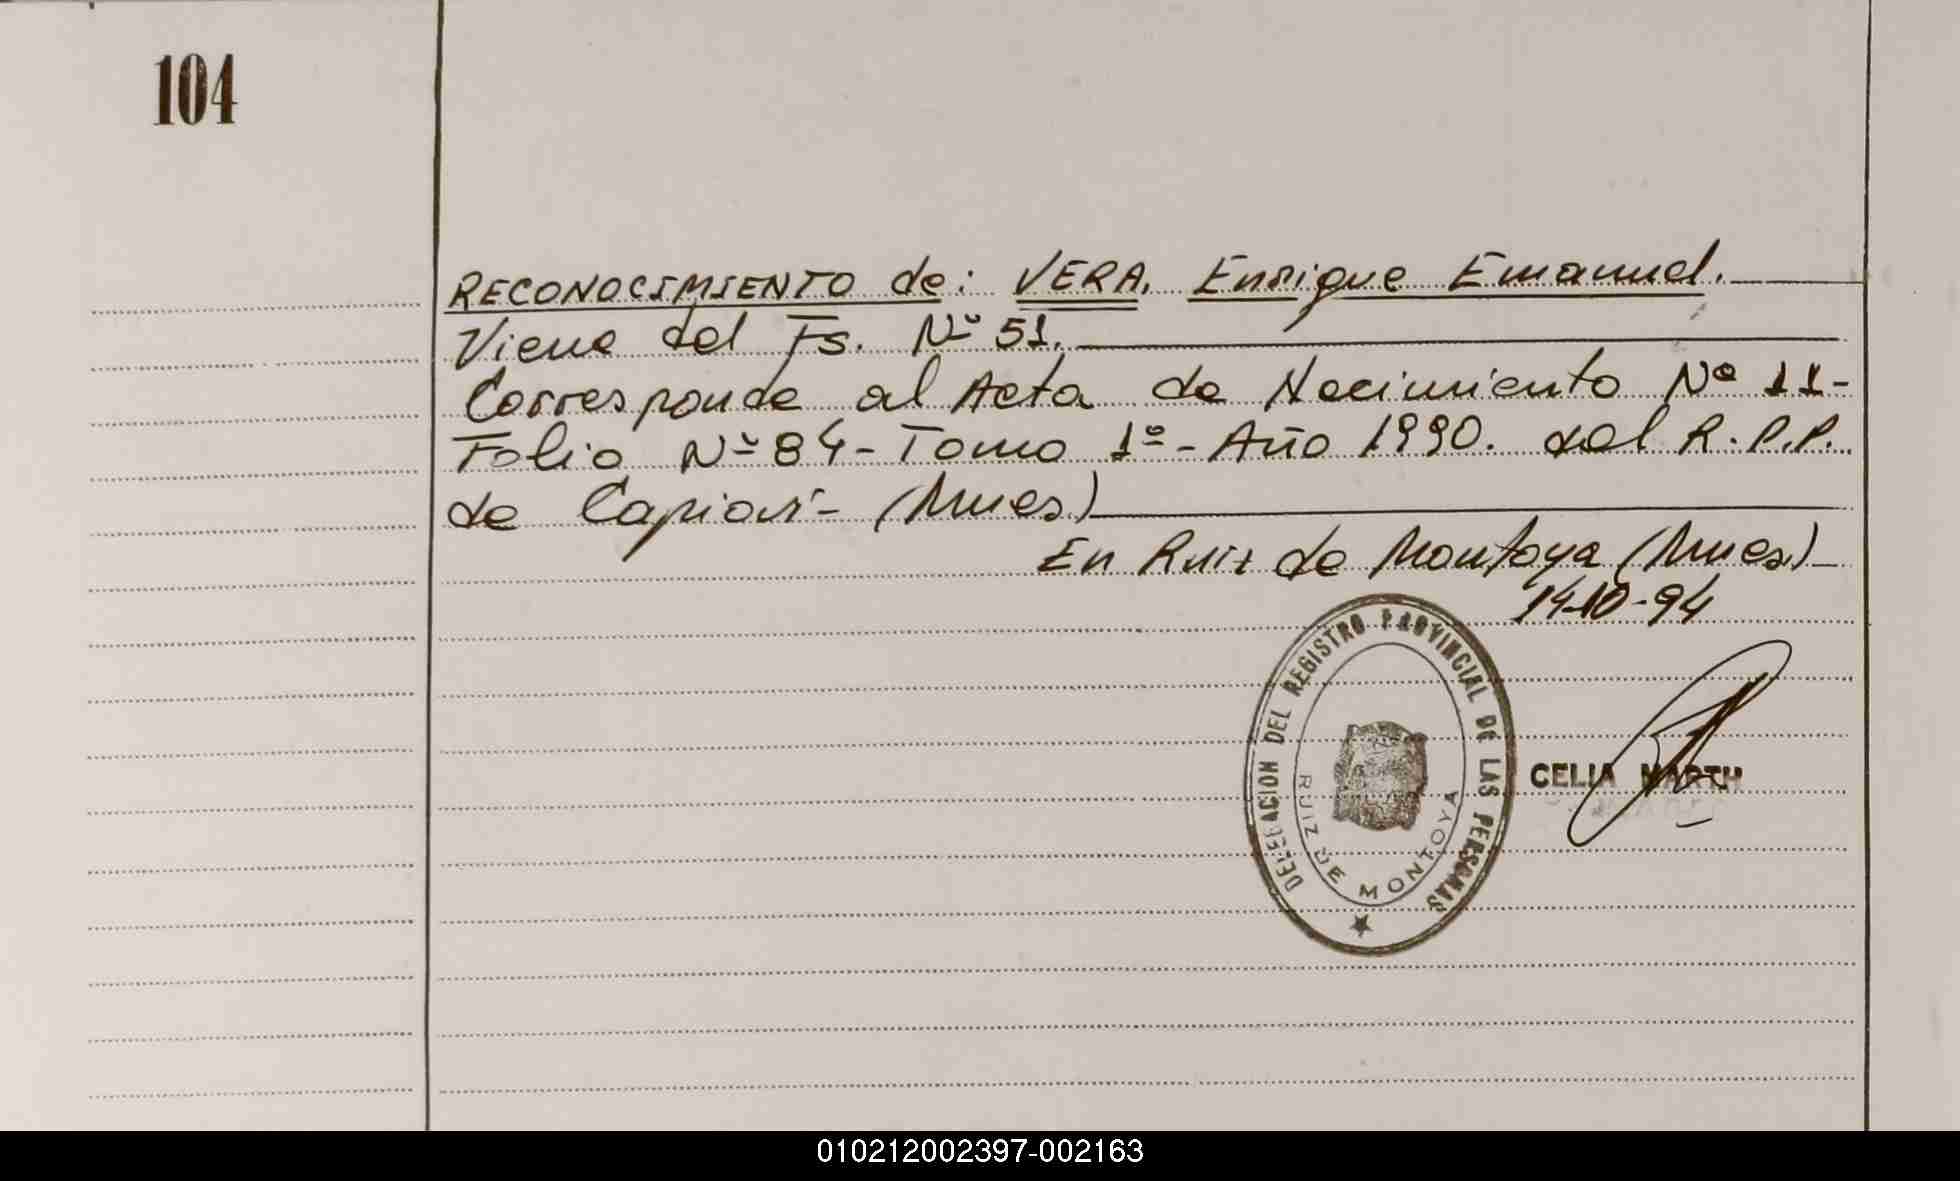 104
RECONOCIMIENTO de: VERA, Enrique Emanuel.
Viene del Fs. Nº 51.
Corresponde al Acta de Nacimiento Nº 11-
Folio Nº 84 - Tomo 1º - Año 1990. del R.P.P.
de Capioví - (Mnes)
En Ruiz de Montoya (Mnes)
14-10-94
DELEGACION DEL REGISTRO PROVINCIAL DE LAS PERSONAS
RUIZ DE MONTOYA
CELIA MARTH
010212002397-002163